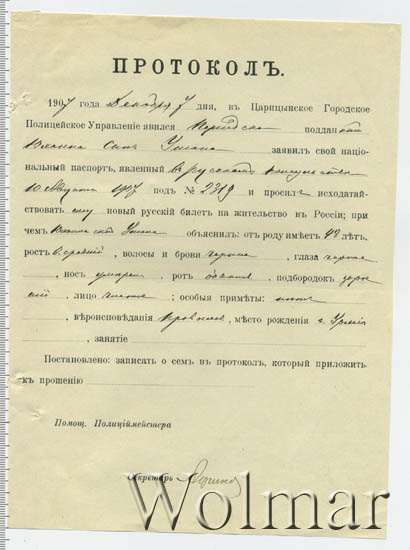 ПРОТОКОЛЪ.
1907 года Декабря 7 дня, въ Царицынское Городское
Полицейское Управленіе явился Персидско поддан
Сынъ заявилъ свой націо-
нальный паспортъ, явленный въ русскомъ консульствѣ
10 августа 1907 подъ № 2319 и просилъ исходатай-
ствовать ему новый русскій билетъ на жительство въ Россіи; при
чемъ объяснилъ: отъ роду имѣетъ 42 лѣтъ,
ростъ средній, волосы и брови черные, глаза черные
, носъ умѣрен, ротъ обыкнов, подбородокъ
, лицо чистое; особыя примѣты:
, вѣроисповѣданія правосл, мѣсто рожденія г. Урмія
, занятіе
Постановлено: записать о семъ въ протоколъ, который приложить
къ прошенію
Помощ. Полиціймейстера
Секретарь
Wolmar